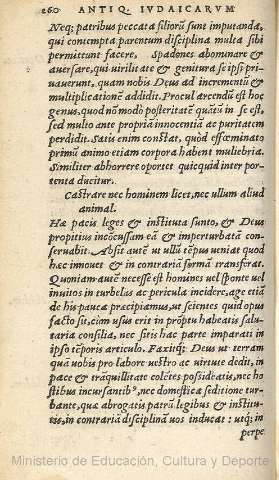 260 ANTIQ. IVDAICARVM
Neq; patribus peccata filiorū sunt imputanda,
qui contempta parentum disciplina multa sibi
permittunt facere. Spadones abominare &
auersare, qui uirilitate & genitura se ipsi pri-
uauerunt, quam nobis Deus ad incrementū &
multiplicationē addidit. Procul arcendū est hoc
genus. quod nō modo posteritatē quātū in se est,
sed mulio ante propriā innocentiā ac puritatem
perdidit. Satis enim constat, quòd effœminato
primū animo etiam corpora habent muliebria.
Similiter abhorrere oportet quicquid inter por-
tenta ducitur.
Castrare nec hominem licet, nec ullum aliud
animal.
Hæ pacis leges & instituta sunto, & Deus
propitius incōcussam eā & imperturbatā con-
seruabit. Absit autē ut ullū tēpus ueniat quod
hæc innouet & in contrariā formā transferat.
Quoniam autē necesse est homines uel sponte uel
inuitos in turbelas ac pericula incidere, age etiā
de his pauca præcipiamus, ut scientes quid opus
facto sit, cùm usus erit in prōptu habeatis salu-
taria consilia, nec sitis hac parte imparati in
ipso tēporis articulo. Faxitq; Deus ut terram
quā uobis pro labore uestro ac uirtute dedit, in
pace & trāquillitate colētes possideatis, nec ho
stibus incursantib', nec domestica seditione tur-
bante, quæ abrogatis patrū legibus & institu-
tis, in contrariā disciplinā uos inducat : utq; in
perpe
Ministerio de Educación, Cultura y Deporte